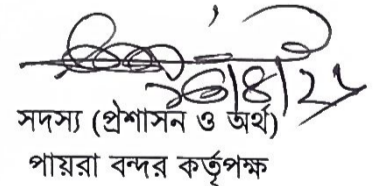 সদস্য (প্রশাসন ও অর্থ)
পায়রা বন্দর কর্তৃপক্ষ